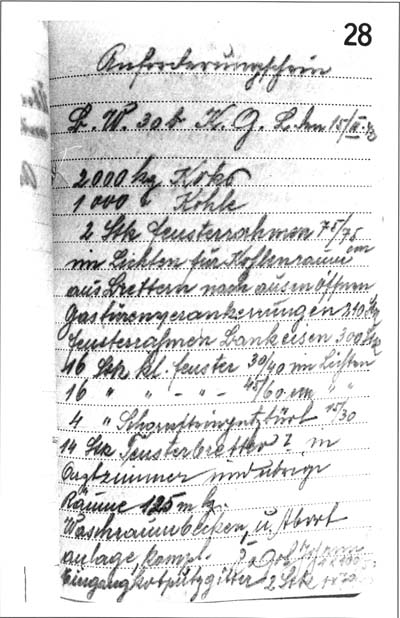 28
Anforderungsschein
B. W. 30b K. G. L. den 15/
2000 kg Koks
1000 " Kohle
2 Stk Fensterrahmen 75/75 cm
im Lichten für Kohlenraum
aus Brettern nach aussen öffnen
Gastürenverankerungen 210 Stk
Fensterrahmen Bankeisen 300 Stk
16 Stk kl. Fenster 30/40 im Lichten
16 " " - " - 45/60 cm " "
4 " Schornsteinputztürl 15/30
14 Stk Fensterbretter in
Arztzimmer und übrige
Räume 125 m lg.
Waschraumbecken, u. Abort
anlage, kompl.
Eingang kotputzgitter 2 Stk